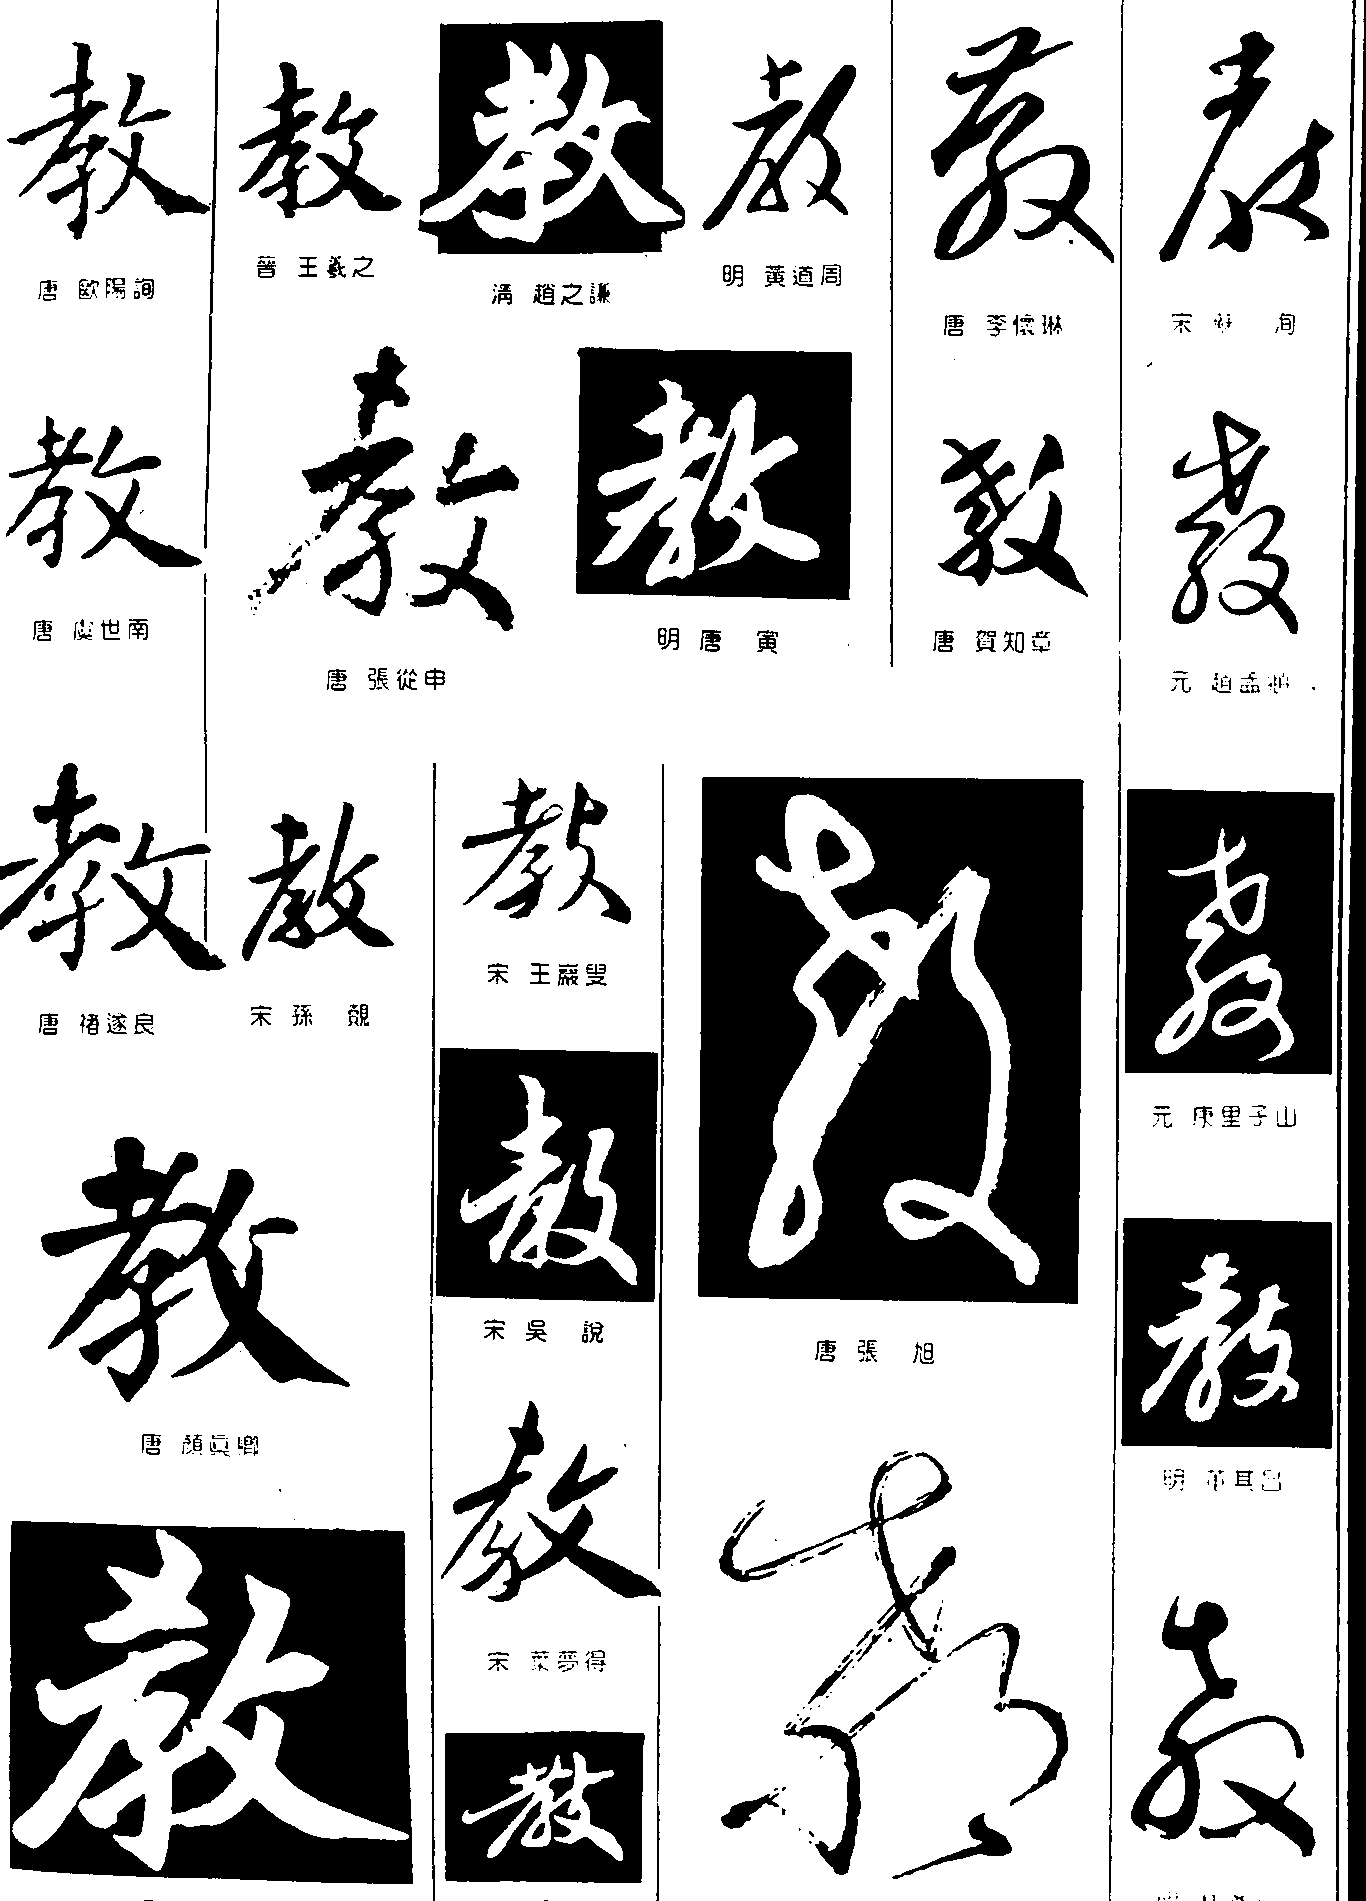 教 教 教 教 教 教
唐 歐陽詢
晉 王羲之
清 趙之謙
明 黃道周
唐 李懷琳
宋 蘇 洵
教 教 教 教 教
唐 虞世南
唐 張從申
明 唐 寅
唐 賀知章
元 趙孟頫
教 教 教 教 教
唐 褚遂良
宋 孫 覿
宋 王巖叟
唐 張 旭
元 康里子山
教 教 教
唐 顏真卿
宋 吳 說
明 董其昌
教 教 教 教 教
宋 葉夢得